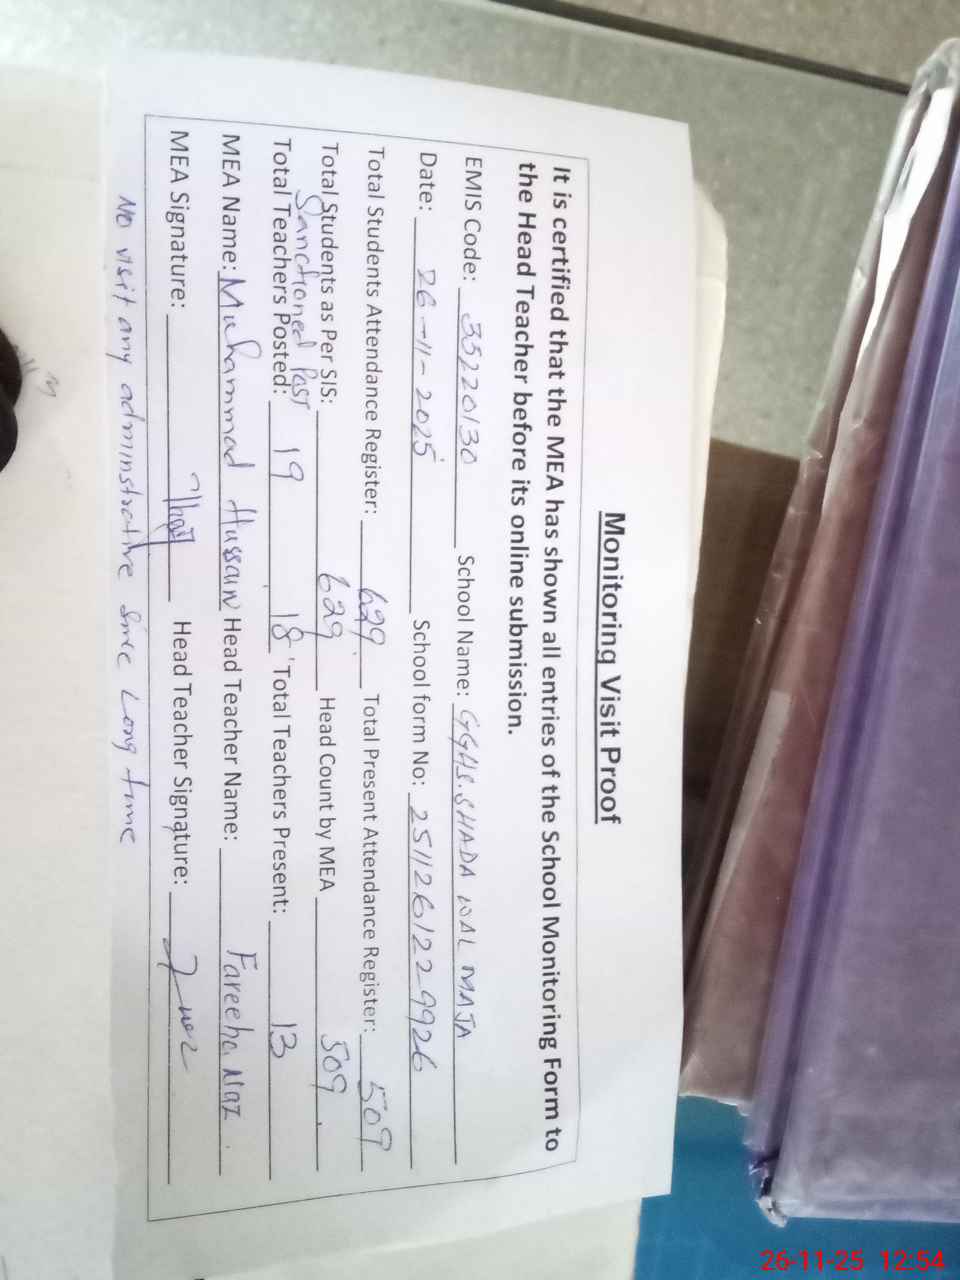 Monitoring Visit Proof
It is certified that the MEA has shown all entries of the School Monitoring Form to
the Head Teacher before its online submission.
EMIS Code: 35220130 School Name: GGHS.SHADA WAL MAJA
Date: 26-11-2025 School form No: 251126122 9926
Total Students Attendance Register: 629 Total Present Attendance Register: 509
Total Students as Per SIS: 629 Head Count by MEA 509
Sanctioned Post
Total Teachers Posted: 19 18 Total Teachers Present: 13
MEA Name: Muhammad Hussain Head Teacher Name: Fareeha Naz
MEA Signature: Head Teacher Signature:
No visit any adminstrative since Long time
26-11-25 12:54